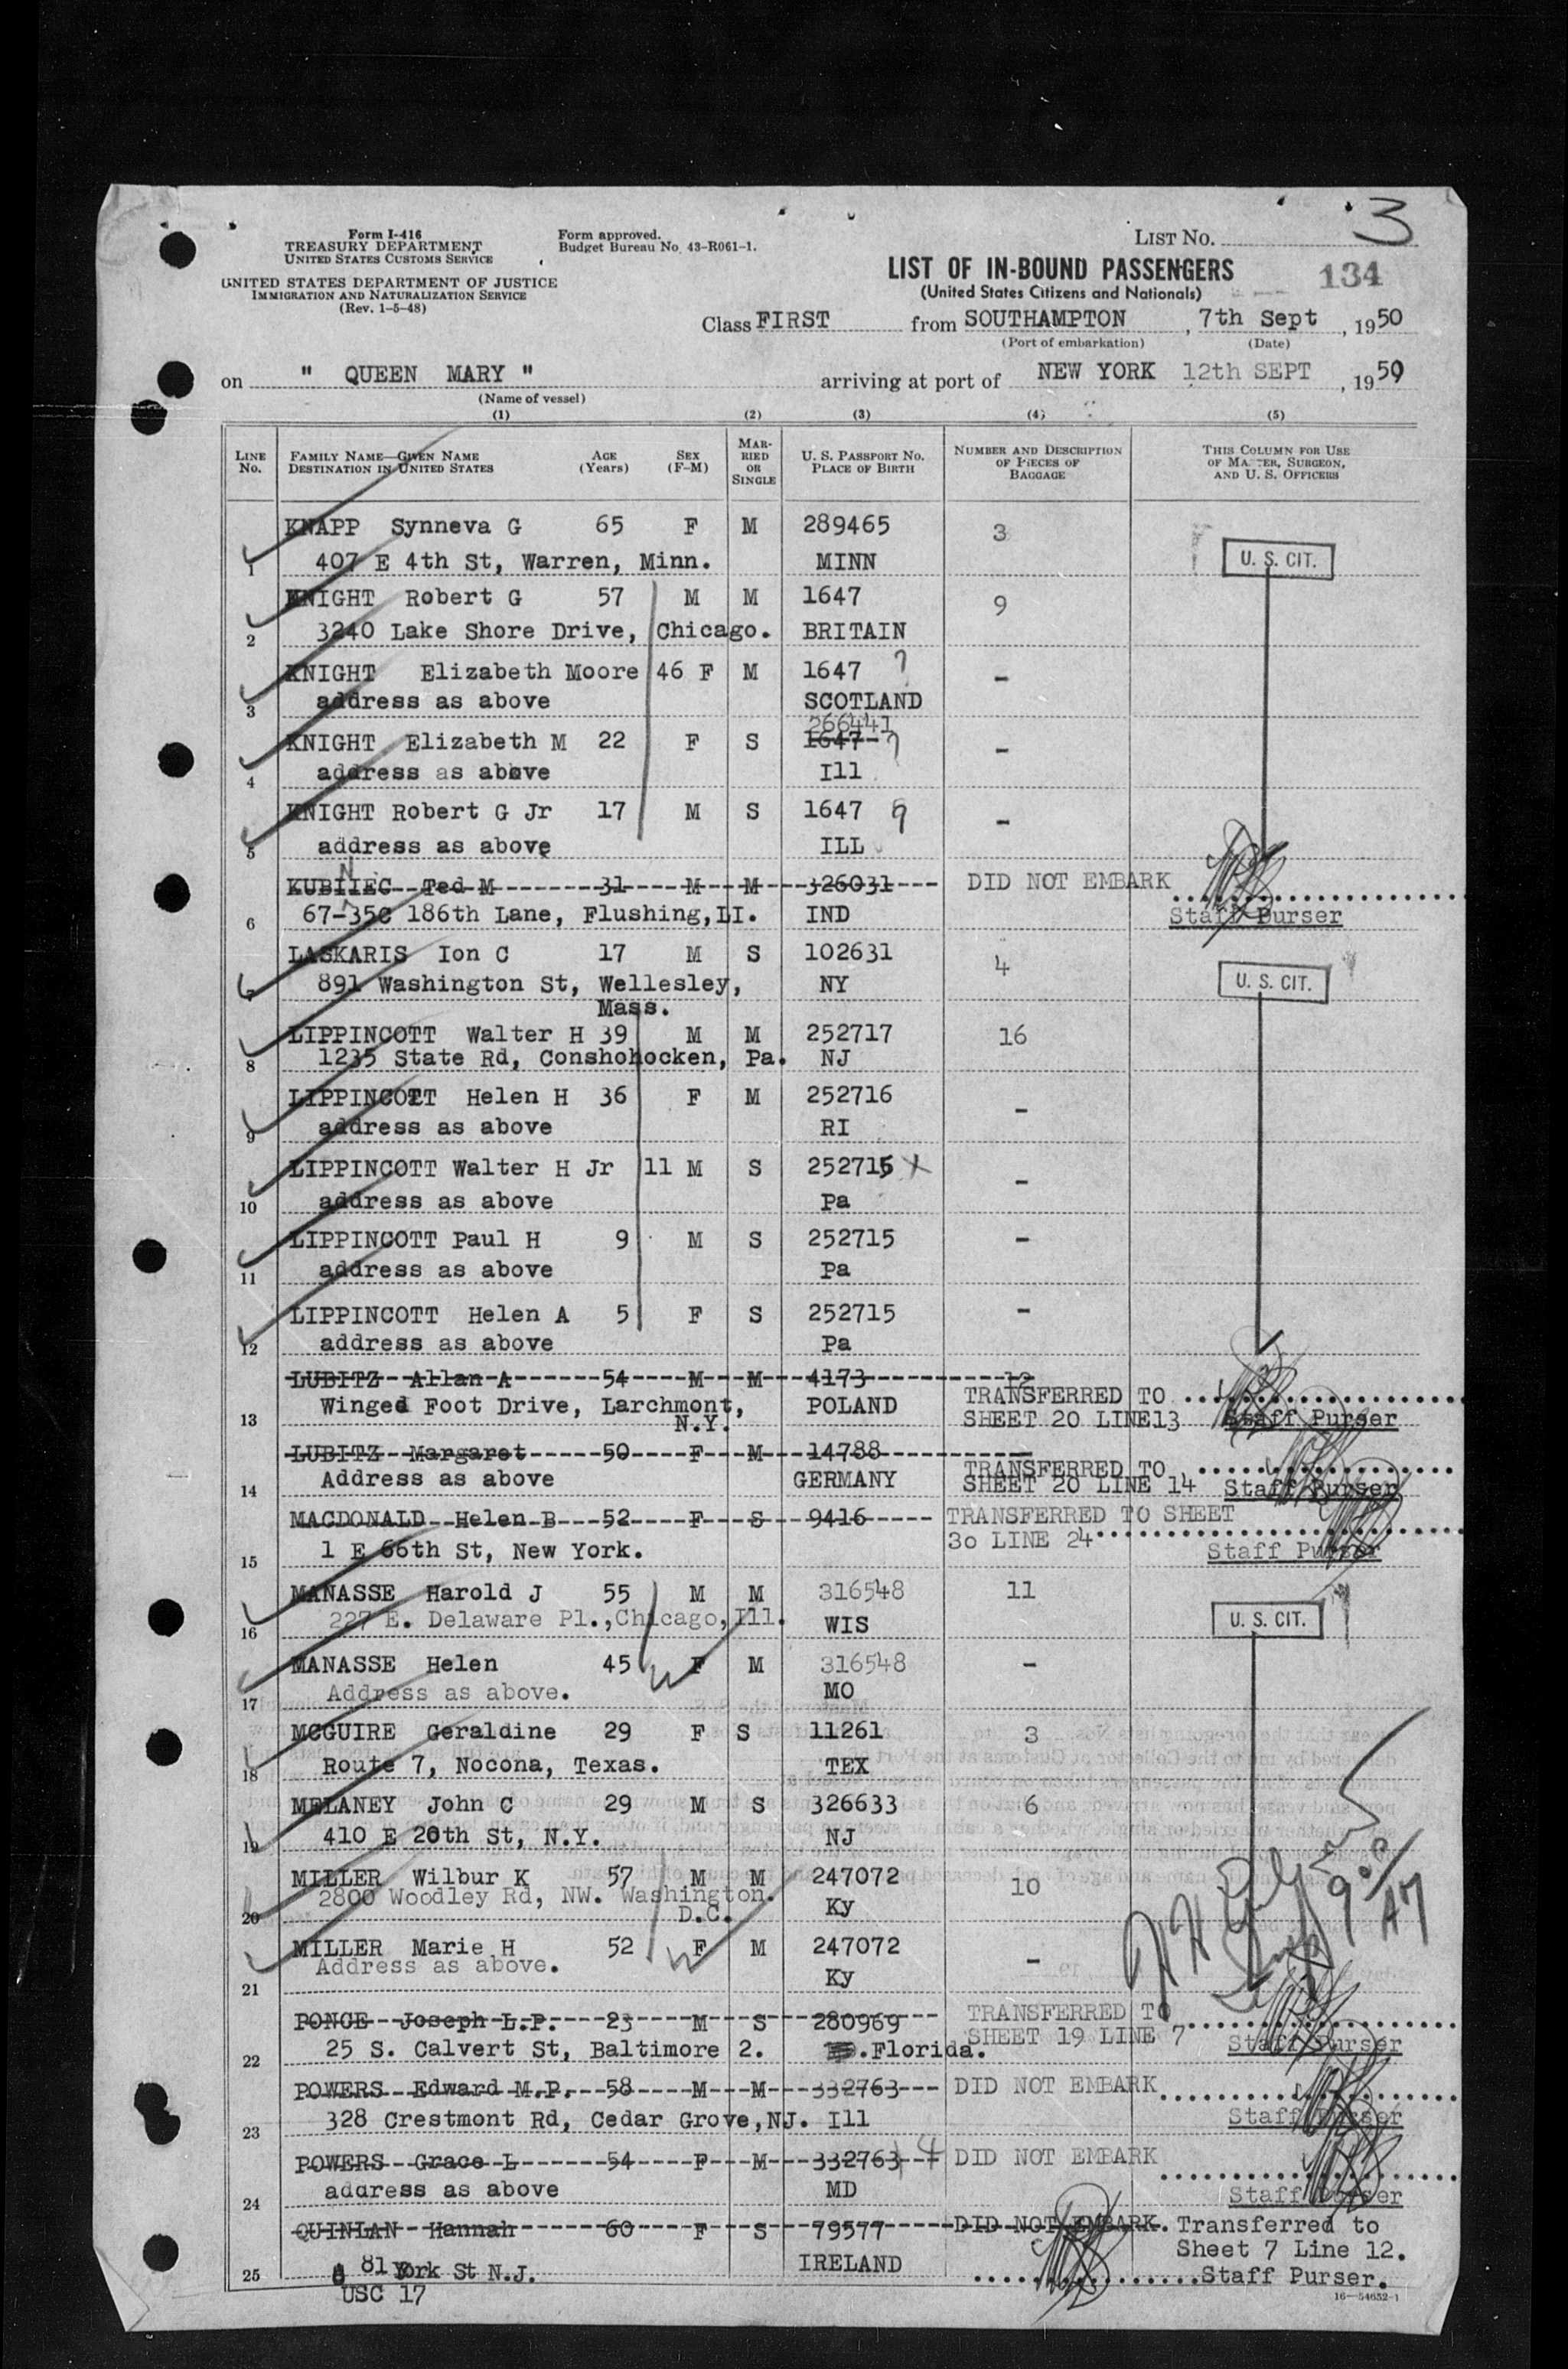 Form I-416
TREASURY DEPARTMENT
UNITED STATES CUSTOMS SERVICE
UNITED STATES DEPARTMENT OF JUSTICE
IMMIGRATION AND NATURALIZATION SERVICE
(Rev. 1-5-48)
Form approved.
Budget Bureau No. 43-R061-1.
LIST No. 3
LIST OF IN-BOUND PASSENGERS
134
(United States Citizens and Nationals)
Class FIRST from SOUTHAMPTON, 7th Sept, 1950
(Port of embarkation) (Date)
on " QUEEN MARY " arriving at port of NEW YORK 12th SEPT, 1950
(Name of vessel)
(1) (2) (3) (4) (5)
LINE No. FAMILY NAME—GIVEN NAME DESTINATION IN UNITED STATES AGE (Years) SEX (F-M) MARRIED OR SINGLE U. S. PASSPORT NO. PLACE OF BIRTH NUMBER AND DESCRIPTION OF PIECES OF BAGGAGE THIS COLUMN FOR USE OF MASTER, SURGEON, AND U. S. OFFICERS
KNAPP Synneva G 65 F M 289465 3
1 407 E 4th St, Warren, Minn. MINN U. S. CIT.
KNIGHT Robert G 57 M M 1647 9
2 3240 Lake Shore Drive, Chicago. BRITAIN
KNIGHT Elizabeth Moore 46 F M 1647 ? -
3 address as above SCOTLAND
266441
KNIGHT Elizabeth M 22 F S 1647 ? -
4 address as above Ill
KNIGHT Robert G Jr 17 M S 1647 ? -
5 address as above ILL
N
KUBIIEC Ted M 31 M M 326031 DID NOT EMBARK
6 67-35C 186th Lane, Flushing, LI. IND Staff Purser
LASKARIS Ion C 17 M S 102631 4
7 891 Washington St, Wellesley, NY U. S. CIT.
Mass.
LIPPINCOTT Walter H 39 M M 252717 16
8 1235 State Rd, Conshohocken, Pa. NJ
LIPPINCOTT Helen H 36 F M 252716 -
9 address as above RI
LIPPINCOTT Walter H Jr 11 M S 252715 X -
10 address as above Pa
LIPPINCOTT Paul H 9 M S 252715 -
11 address as above Pa
LIPPINCOTT Helen A 5 F S 252715 -
12 address as above Pa
LUBITZ Allan A 54 M M 4173 12
TRANSFERRED TO
13 Winged Foot Drive, Larchmont, POLAND SHEET 20 LINE13 Staff Purser
N.Y.
LUBITZ Margaret 50 F M 14788 -
TRANSFERRED TO
14 Address as above GERMANY SHEET 20 LINE 14 Staff Purser
MACDONALD Helen B 52 F S 9416 TRANSFERRED TO SHEET
30 LINE 24
15 1 E 66th St, New York. Staff Purser
MANASSE Harold J 55 M M 316548 11
16 227 E. Delaware Pl., Chicago, Ill. WIS U. S. CIT.
MANASSE Helen 45 F M 316548 -
17 Address as above. MO
MCGUIRE Geraldine 29 F S 11261 3
18 Route 7, Nocona, Texas. TEX
MELANEY John C 29 M S 326633 6
19 410 E 20th St, N.Y. NJ
MILLER Wilbur K 57 M M 247072 10
20 2800 Woodley Rd, NW. Washington. Ky
D.C.
MILLER Marie H 52 F M 247072 -
21 Address as above. Ky
PONCE Joseph L.P. 23 M S 280969 TRANSFERRED TO
SHEET 19 LINE 7
22 25 S. Calvert St, Baltimore 2. Florida. Staff Purser
POWERS Edward M.P. 58 M M 332763 DID NOT EMBARK
23 328 Crestmont Rd, Cedar Grove, NJ. Ill Staff Purser
POWERS Grace L 54 F M 332763 DID NOT EMBARK
24 address as above MD Staff Purser
QUINLAN Hannah 60 F S 79577 DID NOT EMBARK. Transferred to
Sheet 7 Line 12.
25 81 York St N.J. IRELAND Staff Purser.
USC 17
16—54652-1